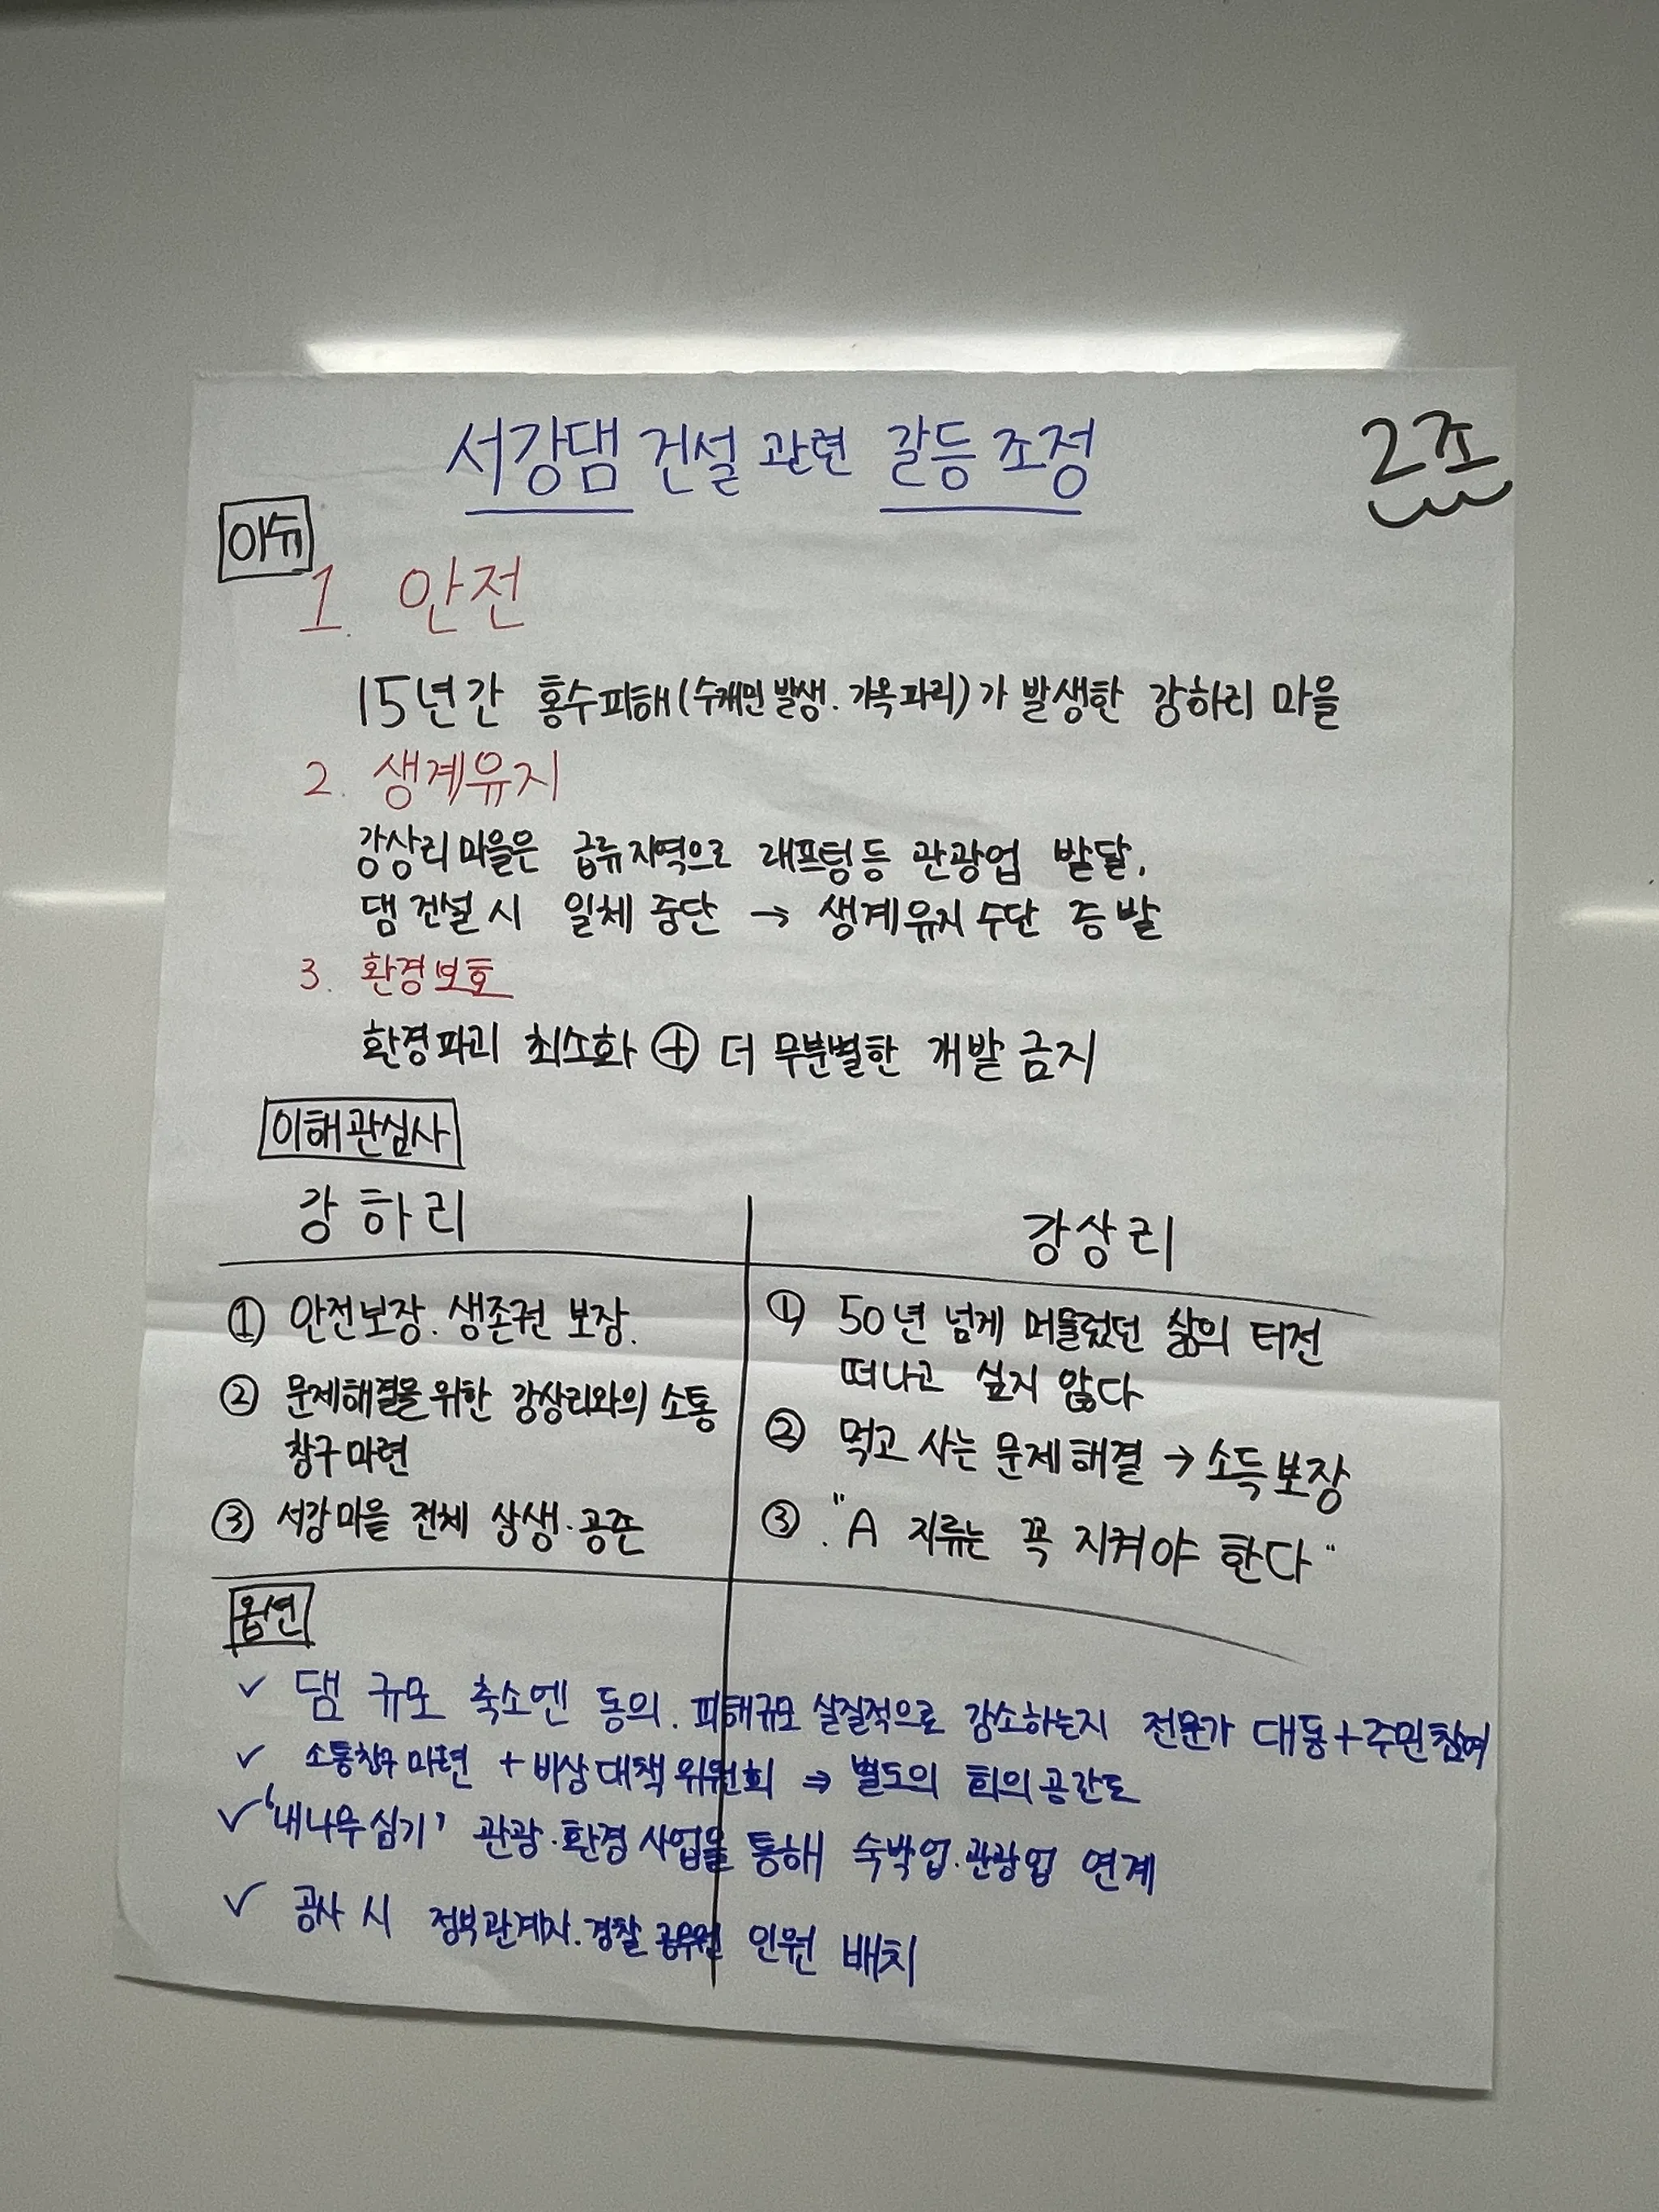 서강댐 건설 관련 갈등 조정
2조
이슈
1. 안전
15년간 홍수피해(수재민 발생. 가옥파괴)가 발생한 강하리 마을
2. 생계유지
강상리 마을은 급류지역으로 래프팅등 관광업 발달,
댐 건설 시 일체 중단 → 생계유지 수단 증발
3. 환경보호
환경파괴 최소화 ⊕ 더 무분별한 개발 금지
이해관심사
강하리
강상리
① 안전보장. 생존권 보장.
② 문제해결을 위한 강상리와의 소통
창구 마련
③ 서강마을 전체 상생·공존
① 50년 넘게 머물렀던 삶의 터전
떠나고 싶지 않다
② 먹고 사는 문제 해결 → 소득보장
③ "A 지류는 꼭 지켜야 한다"
옵션
✓ 댐 규모 축소엔 동의. 피해규모 실질적으로 감소하는지 전문가 대동+주민참여
✓ 소통창구 마련 + 비상대책 위원회 ⇒ 별도의 회의공간도
✓ '내나무심기' 관광·환경 사업을 통해 숙박업·관광업 연계
✓ 공사 시 정부관계자·경찰 공무원 인원 배치